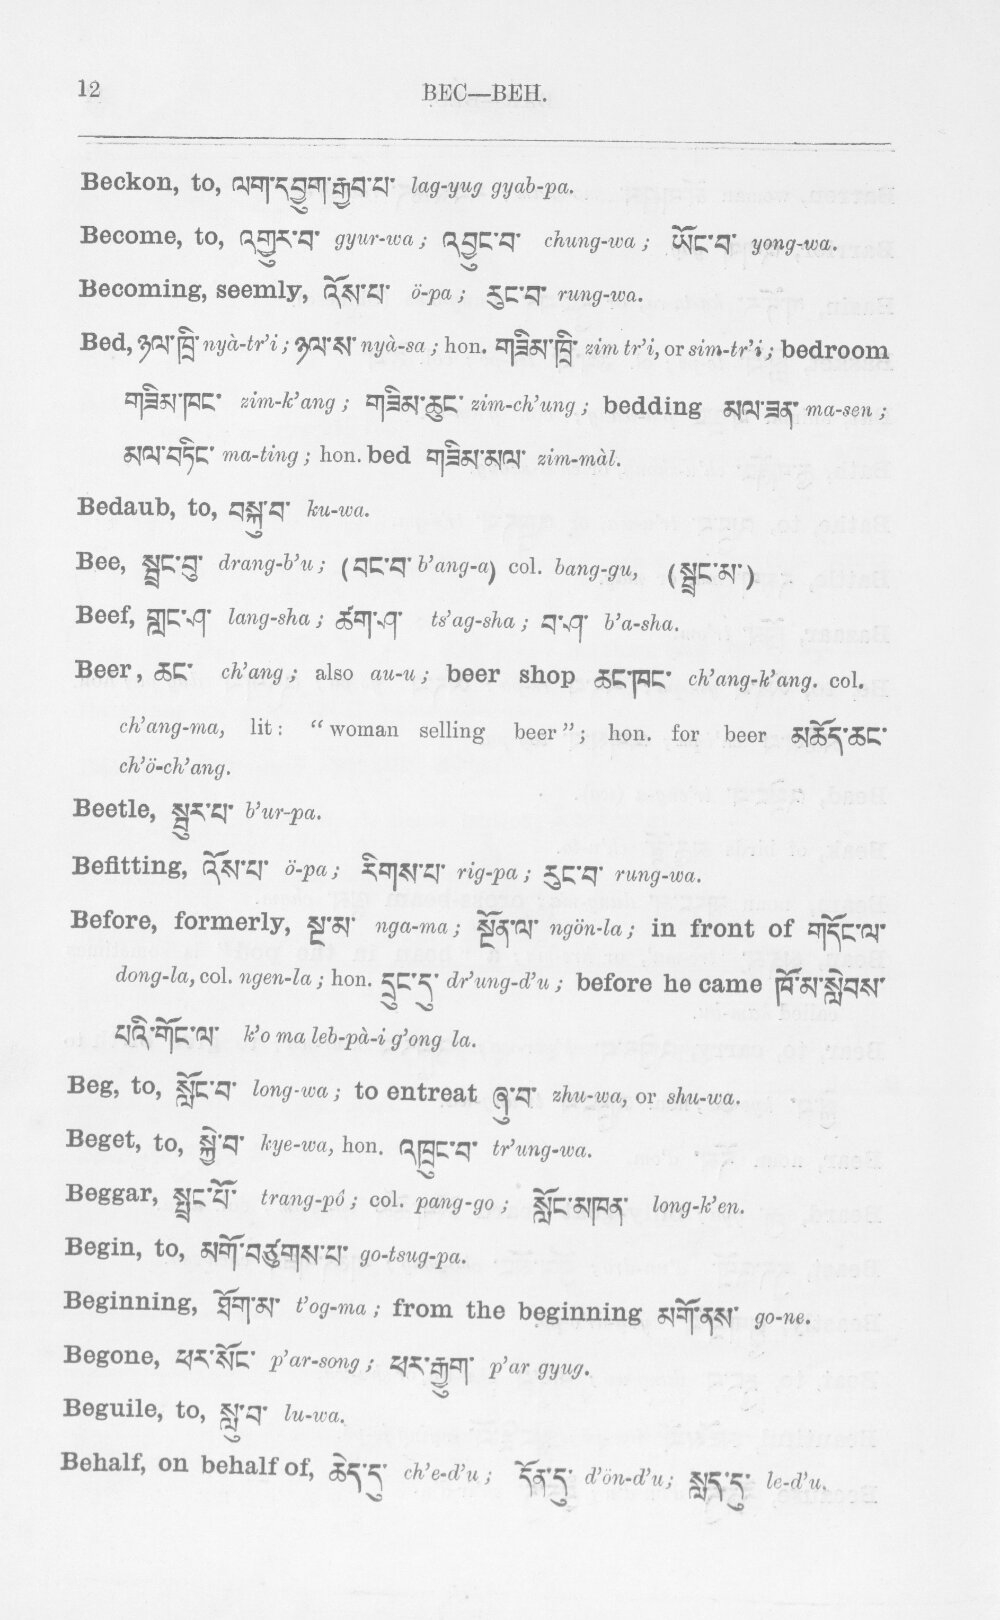 12
BEC—BEH.
Beckon, to, ལག་དབྱུག་རྒྱབ་པ་ lag-yug gyab-pa.
Become, to, འགྱུར་བ་ gyur-wa; འབྱུང་བ་ chung-wa; ཡོང་བ་ yong-wa.
Becoming, seemly, འོས་པ་ ö-pa; རུང་བ་ rung-wa.
Bed, ཉལ་ཁྲི་ nyà-tr'i; ཉལ་ས་ nyà-sa; hon. གཟིམ་ཁྲི་ zim tr'i, or sim-tr'i; bedroom
གཟིམ་ཁང་ zim-k'ang; གཟིམ་ཆུང་ zim-ch'ung; bedding མལ་ཟན་ ma-sen;
མལ་བཏིང་ ma-ting; hon. bed གཟིམ་མལ་ zim-màl.
Bedaub, to, བསྐུ་བ་ ku-wa.
Bee, སྦྲང་བུ་ drang-b'u; (བང་བ་ b'ang-a) col. bang-gu, (སྦྲང་མ་)
Beef, གླང་ཤ་ lang-sha; ཚག་ཤ་ ts'ag-sha; བ་ཤ་ b'a-sha.
Beer, ཆང་ ch'ang; also au-u; beer shop ཆང་ཁང་ ch'ang-k'ang. col.
ch'ang-ma, lit: "woman selling beer"; hon. for beer མཆོད་ཆང་
ch'ö-ch'ang.
Beetle, སྦུར་པ་ b'ur-pa.
Befitting, འོས་པ་ ö-pa; རིགས་པ་ rig-pa; རུང་བ་ rung-wa.
Before, formerly, སྔ་མ་ nga-ma; སྔོན་ལ་ ngön-la; in front of གདོང་ལ་
dong-la, col. ngen-la; hon. དྲུང་དུ་ dr'ung-d'u; before he came ཁོ་མ་སླེབས་
པའི་གོང་ལ་ k'o ma leb-pà-i g'ong la.
Beg, to, སློང་བ་ long-wa; to entreat ཞུ་བ་ zhu-wa, or shu-wa.
Beget, to, སྐྱེ་བ་ kye-wa, hon. འཁྲུང་བ་ tr'ung-wa.
Beggar, སྤྲང་པོ་ trang-pó; col. pang-go; སློང་མཁན་ long-k'en.
Begin, to, མགོ་བཙུགས་པ་ go-tsug-pa.
Beginning, ཐོག་མ་ t'og-ma; from the beginning མགོ་ནས་ go-ne.
Begone, ཕར་སོང་ p'ar-song; ཕར་རྒྱུག་ p'ar gyug.
Beguile, to, སླུ་བ་ lu-wa.
Behalf, on behalf of, ཆེད་དུ་ ch'e-d'u; དོན་དུ་ d'ön-d'u; སླད་དུ་ le-d'u.